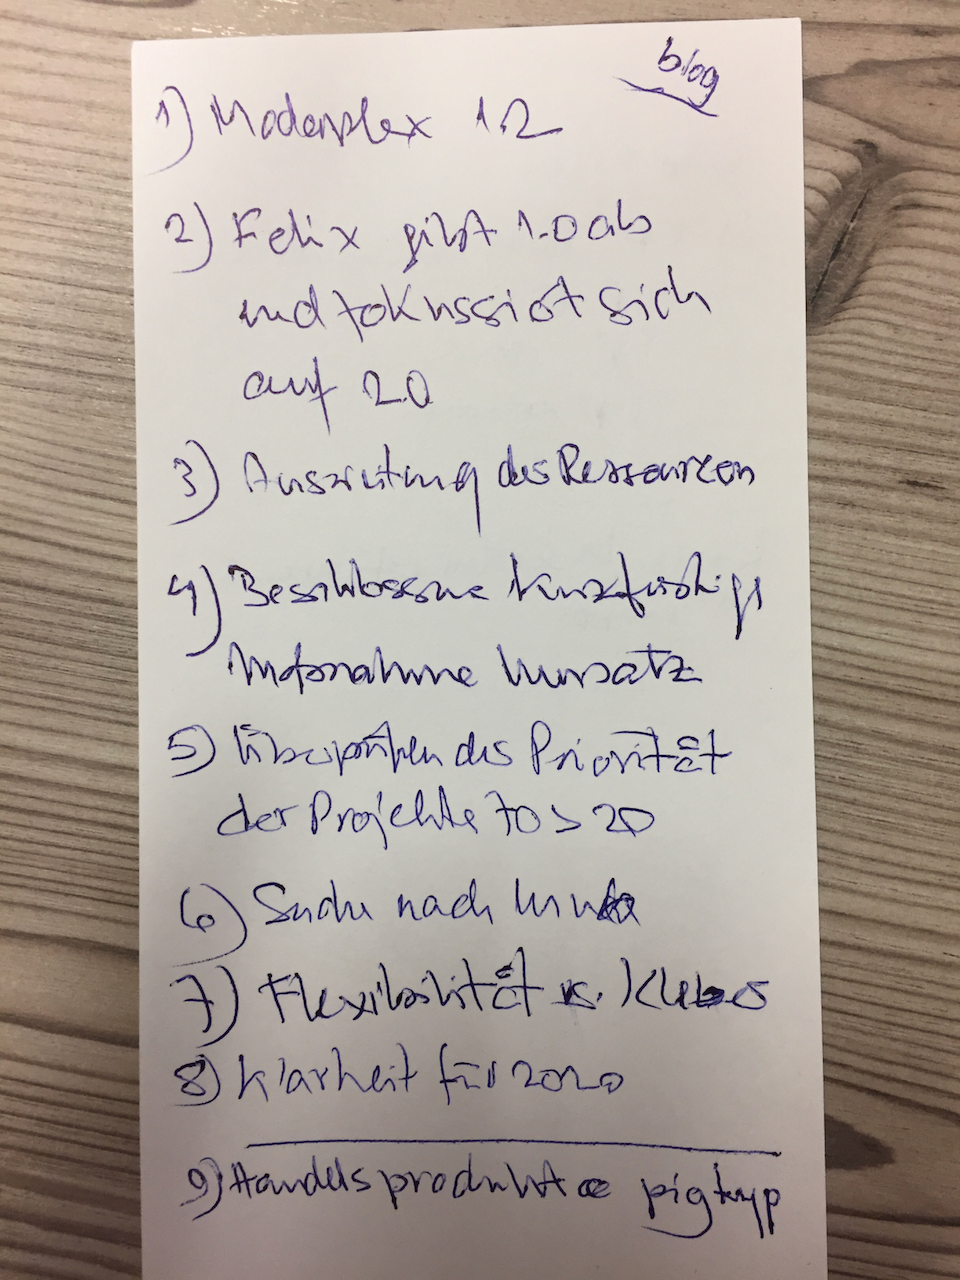 blog
1) Modenplex 1.2
2) Felix gibt 1.0 ab
und fokussiert sich
auf 2.0
3) Ausrichtung des Ressourcen
4) Beschlossene kurzfristige
Maßnahme Umsatz
5) Überprüfen des Priorität
der Projekte 70 > 20
6) Suche nach
7) Flexibilität vs. Kleber
8) Klarheit für 2020
9) Handelsprodukte pigtyp